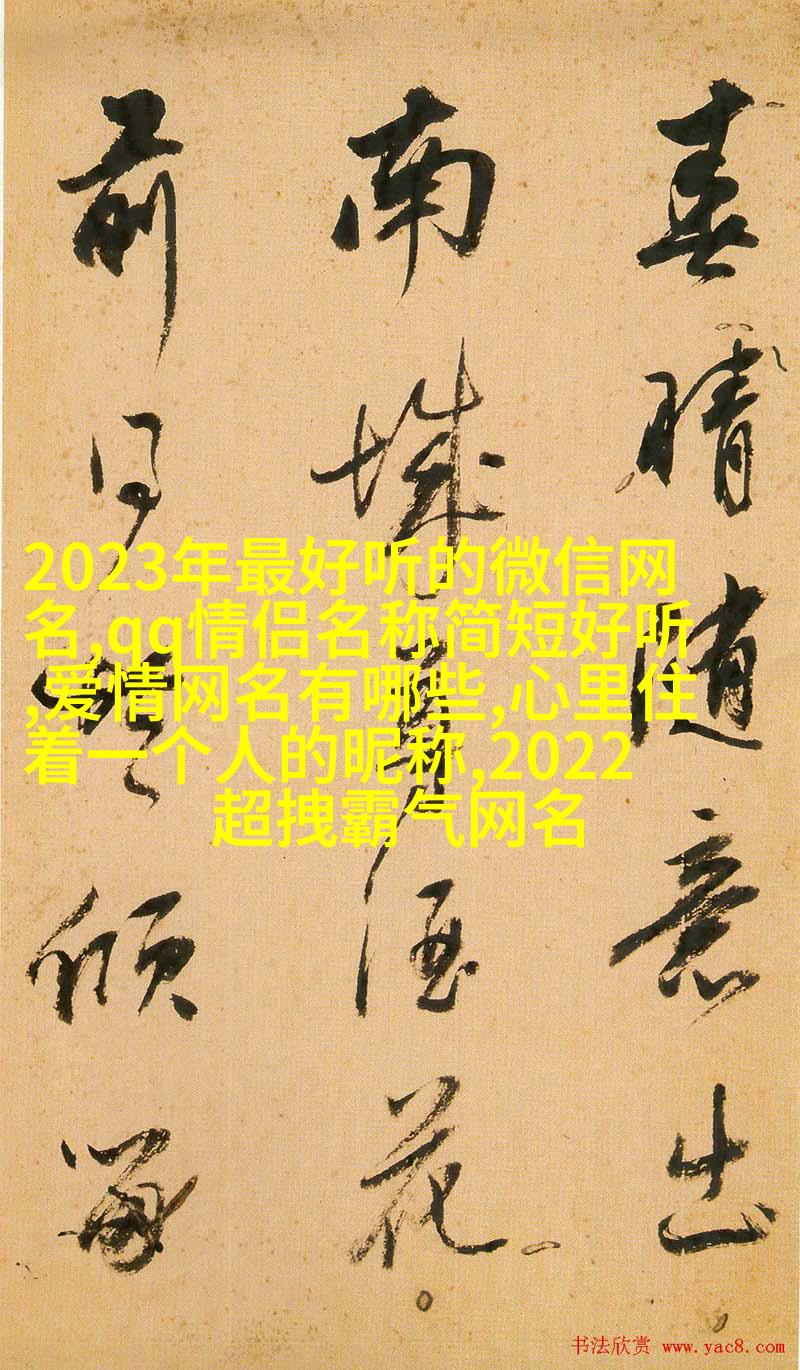 春晴随意出
南城酒花
前倾
2023年最好听的微信网
名,qq情侣名称简短好听
,爱情网名有哪些,心里住
着一个人的昵称,2022
超拽霸气网名
书法欣赏 www.yac8.com